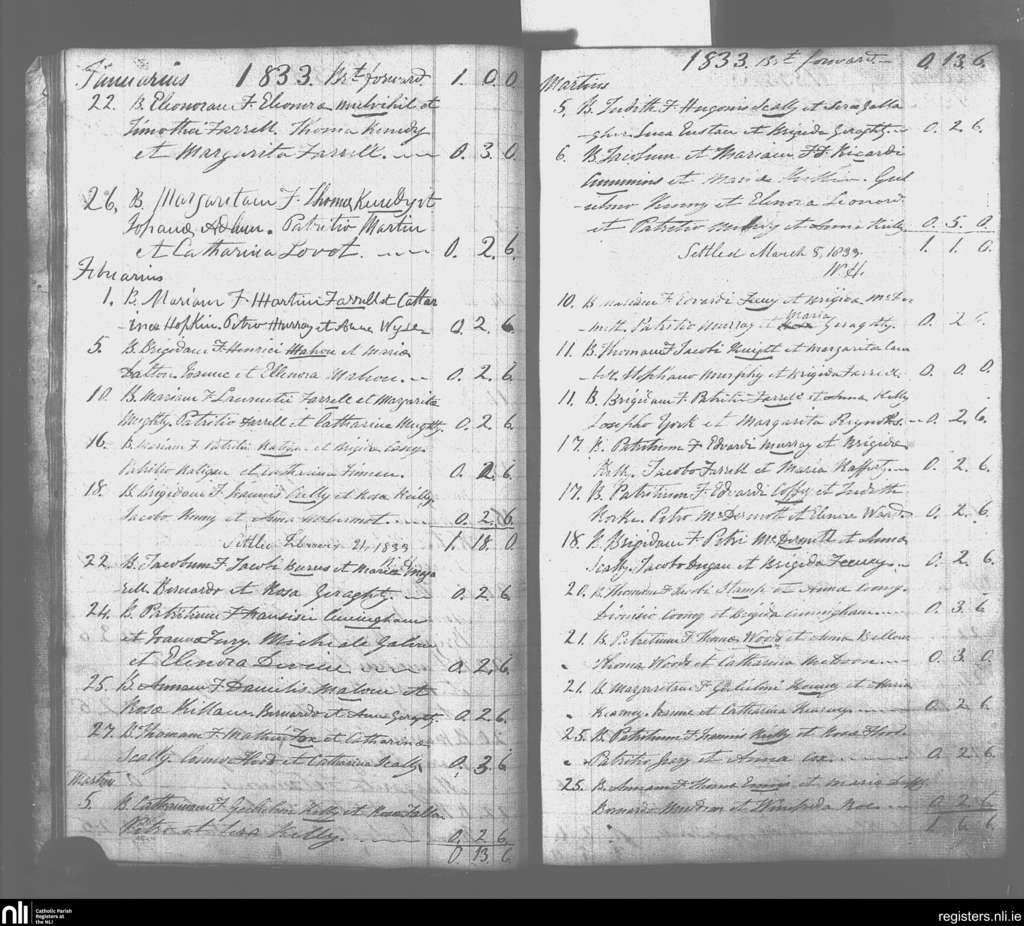 Januarius 1833. Bt forward 1. 0. 0
22. B. Eleonoram F. Eleonora Mulvihil et
Timothei Farrell. Thoma Kenedy
et Margarita Farrell. 0. 3. 0
26. B. Margaretam F. Thoma Kenedy et
Johanæ. Patritio Martin
et Catharina Lovot. 0. 2. 6.
Februarius
1. B. Mariam F. Martini Farrell et Cathar
-inea Hopkin. Petro Murray et Anne Wyse 0. 2. 6
5. B. Brigidam F. Henrici Mahon et Mariæ
Dalton. Joanne et Ellenora Mahon. 0. 2. 6
10. B. Mariam F. Laurentii Farrell et Margarita
Patritio Farrell et Catharina 0. 2. 6
16. B. Mariam F. Patritii et Brigida Casey
Patritio et Catharina 0. 2. 6
18. B. Brigidam F. Joannis Crilly et Rosa Reilly
Jacobo Kenny et Anna McDermot. 0. 2. 6
Settled February 21, 1833 1. 18. 0
22. B. Jacobum F. Jacobi Burns et Maria
Bernardo et Rosa Geraghty. 0. 2. 6
24. B. Patritium F. Francisci Cuningham
et Joanna Fury. Michaele Galvin
et Elenora 0. 2. 6
25. B. Annam F. Danielis Maloun et
Rosæ Killian. Bernardo et Anne Geraghty. 0. 2. 6.
27. B. Thomam F. Mathei Fox et Catharinæ
Scally. Flood et Catharina Scally 0. 3. 6
Martius
5. B. Catharinam F. Gulielmi Kelly et Rosa Fallon
Petro et Kelly. 0. 2. 6
0. 13. 6
1833. Bt forward 0. 13. 6.
Martius
5. B. Judith F. Hugonis Scally et Sera Galla
-gher. Luca Eustace et Brigida Geraghty. 0. 2. 6.
6. B. Jacobum et Mariam F.F. Ricardi
Cummins et Maria. Gul
-ielmo Kenny et Elenora Leonard
et Patritio et Anna Kelly 0. 5. 0
Settled March 8, 1833. 1. 1. 0
10. B. Mariam F. Edvardi et Brigida McDer
-mott. Patritio Murray et Maria Geraghty. 0. 2. 6.
11. B. Thomam F. Jacobi Knight et Margarita Law
-lor. Stephano Murphy et Brigida Farrell. 0. 0. 0
11. B. Brigidam F. Patritii Farrell et Anna Kelly
Josepho York et Margarita Reynolds. 0. 2. 6
17. B. Patritium F. Edvardi Murray et Brigida
Jacobo Farrell et Maria Rafferty. 0. 2. 6
17. B. Patritium F. Edvardi Coffy et Judith
Rorke. Petro McDermott et Elenora Ward. 0. 2. 6.
18. B. Brigidam F. Petri McDermott et Anna
Scally. Jacobo Dugan et Brigida Feeney. 0. 2. 6
20. B. Thomam F. Jacobi Stamp et Anna Cooney.
Dionisio Cooney et Brigida Cunningham 0. 3. 6
21. B. Patritium F. Thomæ Woods et Anna Dillon
Thoma Woods et Catharina 0. 3. 0
21. B. Margaretam F. Gulielmi Kenney et Maria
Kearney. Joanne et Catharina Kearney 0. 2. 6
25. B. Patritium F. Joannis Reilly et Rosa Flood
Patritio et Anna Cox. 0. 2. 6
25. B. Annam F. Thoma Ennis et Maria Duffy
Bernardo et Winifrida 0. 2. 6
1. 6. 6
nli Catholic Parish
Registers at
the NLI
registers.nli.ie